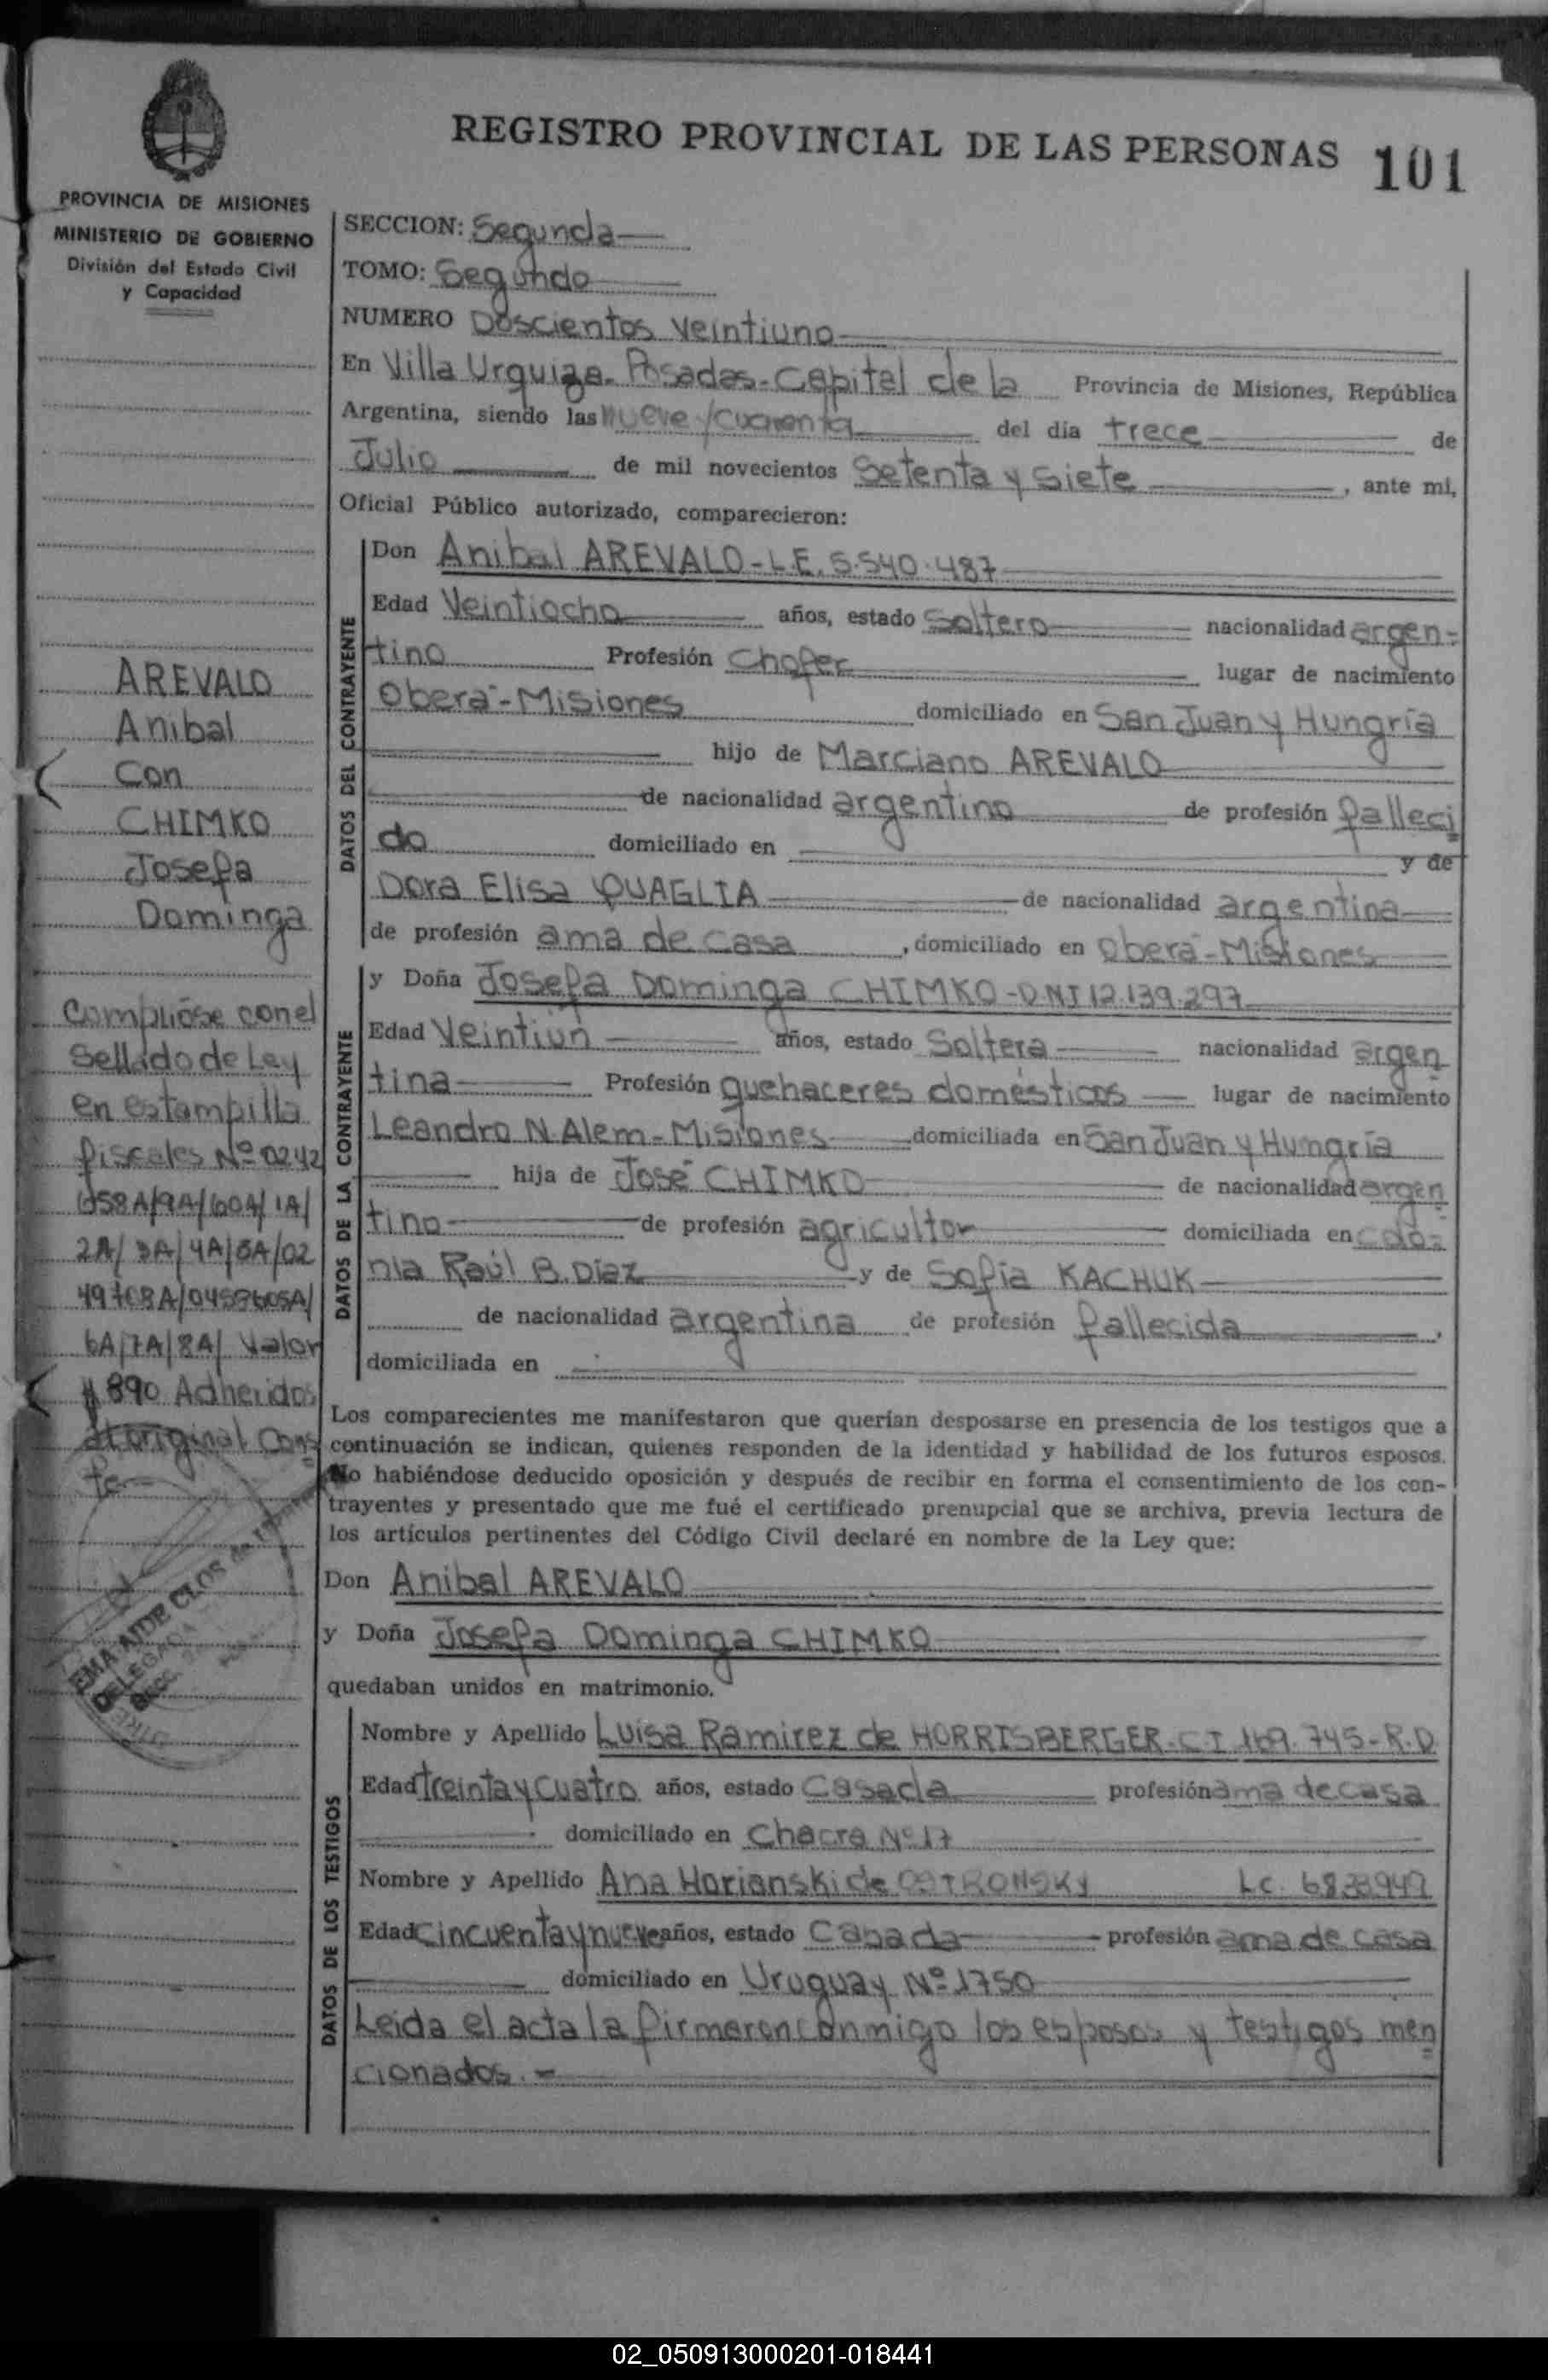 REGISTRO PROVINCIAL DE LAS PERSONAS 101
PROVINCIA DE MISIONES
MINISTERIO DE GOBIERNO
División del Estado Civil
y Capacidad
AREVALO
Anibal
Con
CHIMKO
Josefa
Dominga
Complióse con el
Sellado de Ley
en estampilla
fiscales Nº 0242
658A/9A/60A/1A/
2A/3A/4A/5A/02
6A/7A/8A/ Valor
$ 890 Adheridos
al original Cons
te
EMA AIDE CLOS de
DELEGADA
SECCION: Segunda
TOMO: Segundo
NUMERO Doscientos veintiuno
En Villa Urquiza - Posadas - Capital de la Provincia de Misiones, República
Argentina, siendo las nueve y cuarenta del día trece de
Julio de mil novecientos Setenta y Siete, ante mi,
Oficial Público autorizado, comparecieron:
DATOS DEL CONTRAYENTE
Don Anibal AREVALO - L.E. 5.540.487
Edad Veintiocho años, estado Soltero nacionalidad argen-
tino Profesión Chofer lugar de nacimiento
Obera - Misiones domiciliado en San Juan y Hungría
hijo de Marciano AREVALO
de nacionalidad argentino de profesión falleci
do domiciliado en y de
Dora Elisa QUAGLIA de nacionalidad argentina
de profesión ama de casa, domiciliado en Oberá - Misiones
DATOS DE LA CONTRAYENTE
y Doña Josefa Dominga CHIMKO - DNI 12.139.297
Edad Veintiún años, estado Soltera nacionalidad argen
tina Profesión quehaceres domésticos lugar de nacimiento
Leandro N. Alem - Misiones domiciliada en San Juan y Hungría
hija de José CHIMKO de nacionalidad argen
tino de profesión agricultor domiciliada en colo-
nia Raúl B. Díaz y de Sofía KACHUK
de nacionalidad argentina de profesión fallecida,
domiciliada en
Los comparecientes me manifestaron que querían desposarse en presencia de los testigos que a
continuación se indican, quienes responden de la identidad y habilidad de los futuros esposos.
No habiéndose deducido oposición y después de recibir en forma el consentimiento de los con-
trayentes y presentado que me fué el certificado prenupcial que se archiva, previa lectura de
los artículos pertinentes del Código Civil declaré en nombre de la Ley que:
Don Anibal AREVALO
y Doña Josefa Dominga CHIMKO
quedaban unidos en matrimonio.
DATOS DE LOS TESTIGOS
Nombre y Apellido Luisa Ramirez de HORRISBERGER - C.I. 169.745 - R.D
Edad treinta y cuatro años, estado Casada profesión ama de casa
domiciliado en Chacra Nº 17
Nombre y Apellido Ana Horianski de L.C. 6.833949
Edad cincuenta y nueve años, estado Casada profesión ama de casa
domiciliado en Uruguay Nº 1750
Leida el acta la firmaron conmigo los esposos y testigos men
cionados. -
02_050913000201-018441